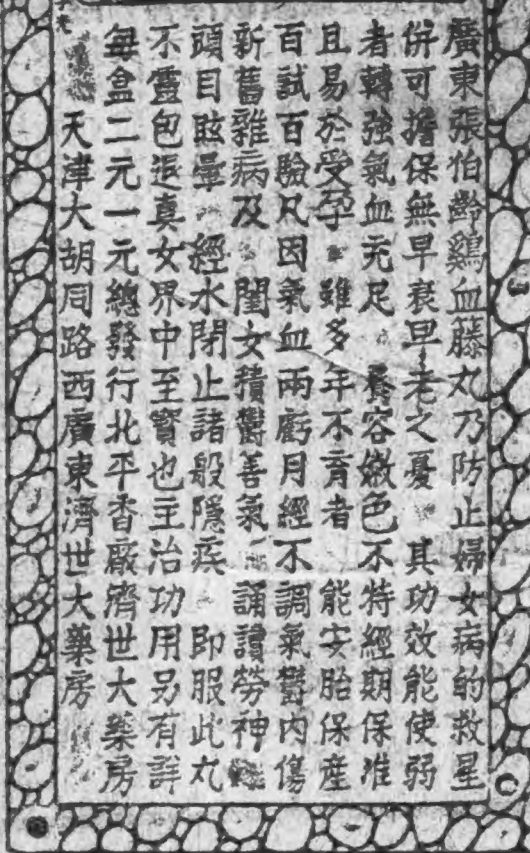 廣東張伯齡鷄血藤丸乃防止婦女病的救星
併可擔保無早衰早老之憂 其功效能使弱
者轉強氣血充足 養容嫩色不特經期保准
且易於受孕 雖多年不育者 能安胎保産
百試百驗凡因氣血兩虧月經不調氣欝內傷
新舊雜病及 閨女積欝善氣 誦讀勞神
頭目眩暈 經水閉止諸般隱疾 即服此丸
不靈包退真女界中至寶也主治功用另有詳
每盒二元一元總發行北平香廠濟世大藥房
天津大胡同路西廣東濟世大藥房